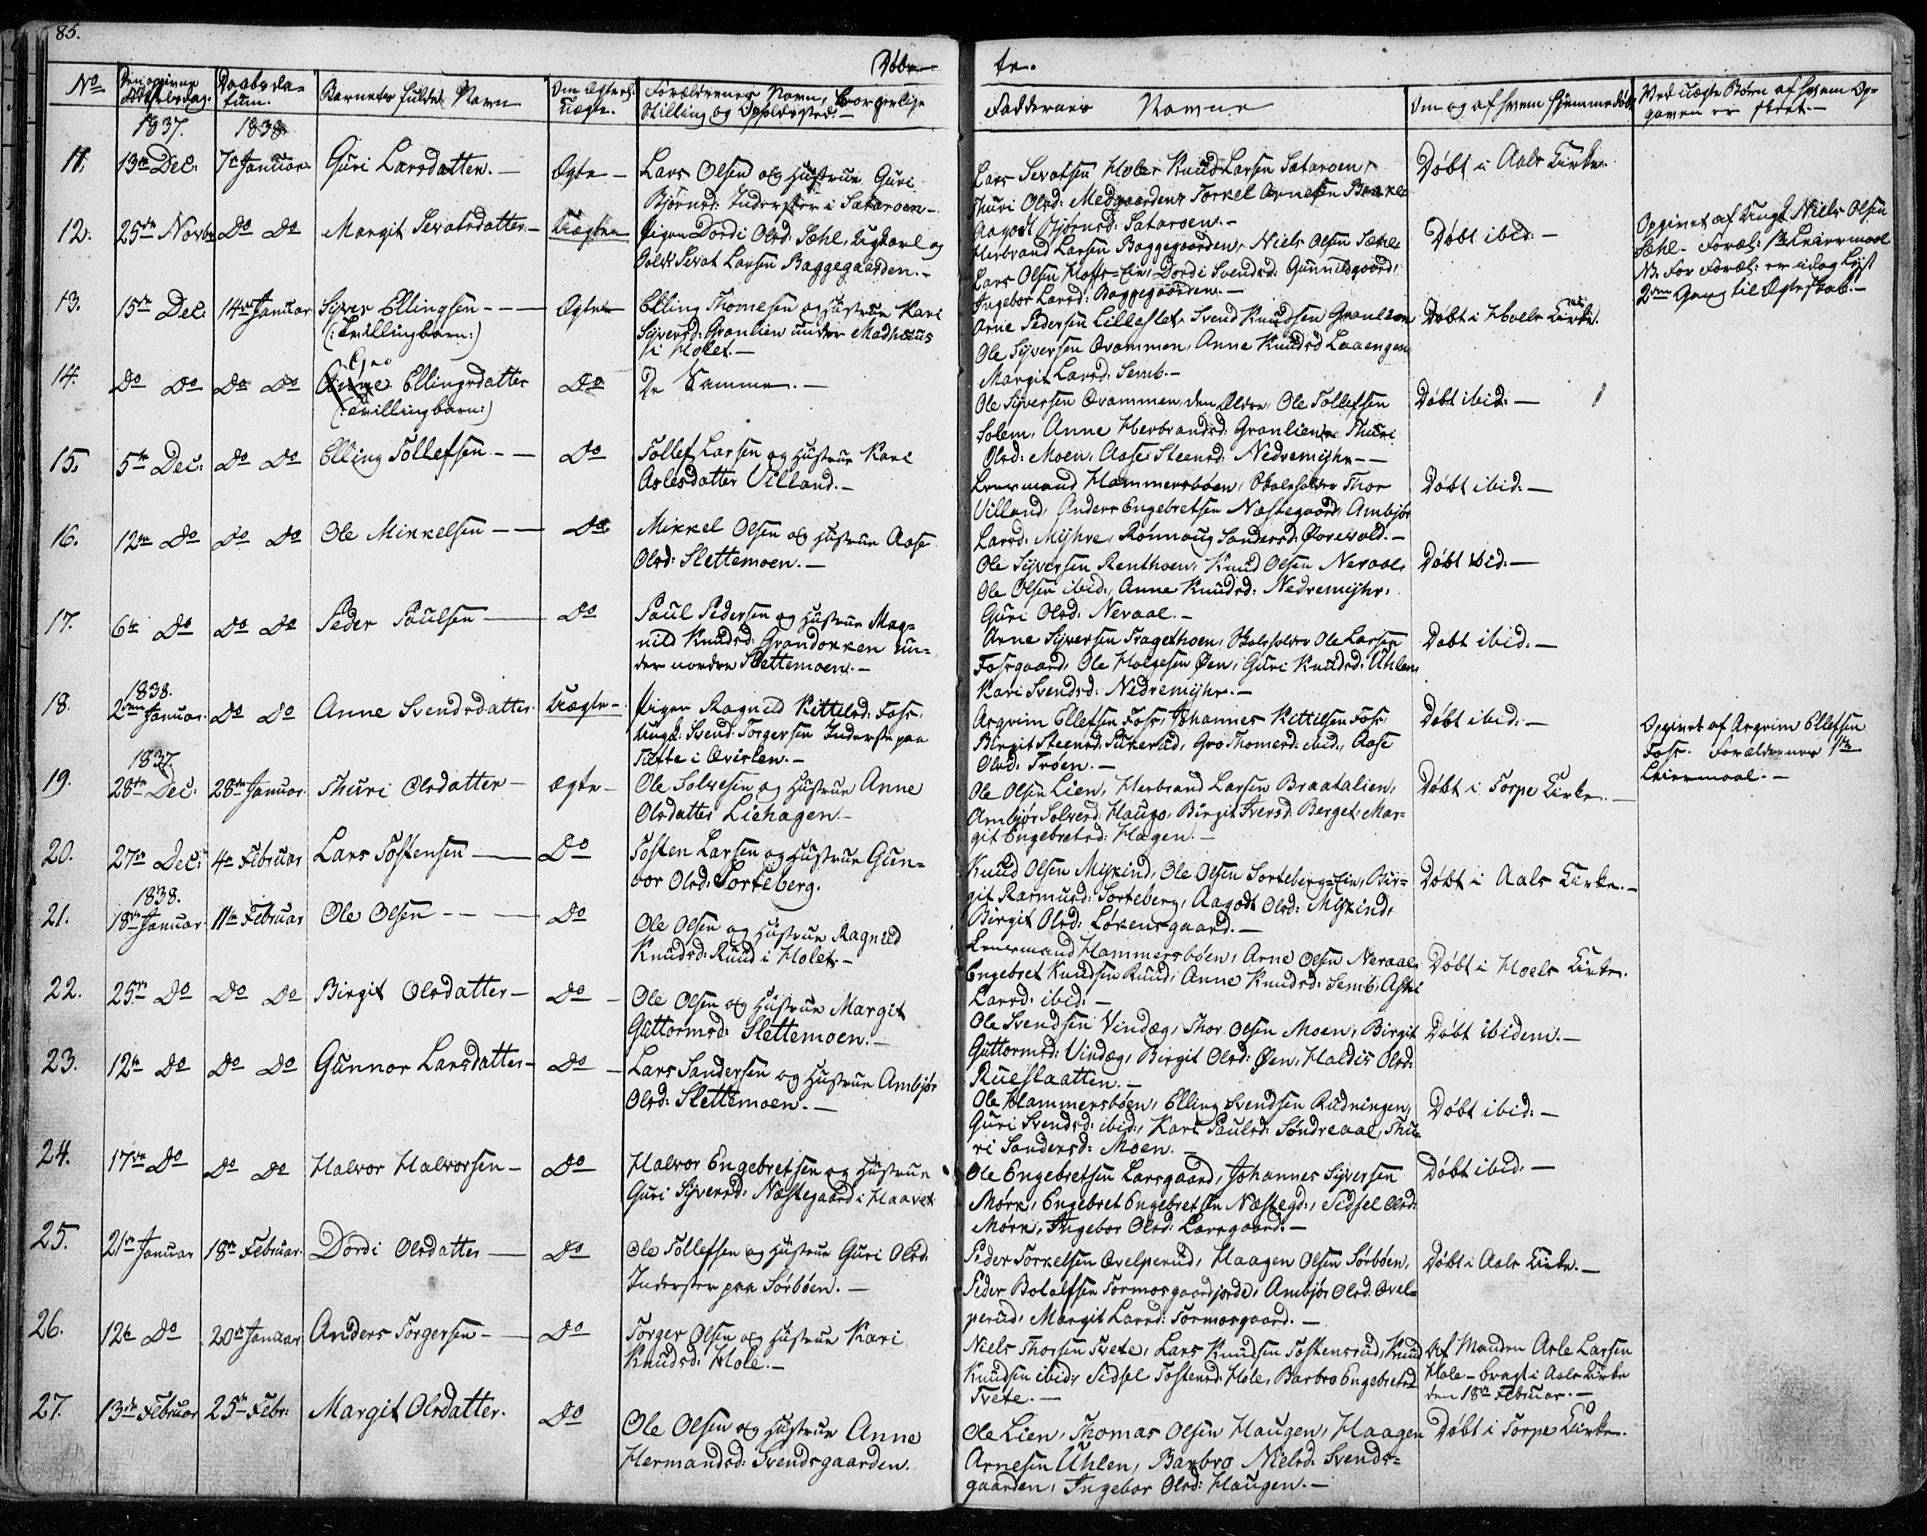 85.
Døb-
te.
No
Den opgivne Fødselsdag.
Daabsda-
tum.
Barnets fulde Navn
Om Ægte el:
Uægte.
Forældrenes Navn, borgerlige
Stilling og Opholdssted.
Faddernes Navne
Om og af hvem hjemmedøbt
Ved uægte Børn af hvem Op-
gaven er skeet.
1837. 1838
11. 13de Dec: 7de Januar Guri Larsdatter. Ægte
Lars Olsen og Hustrue Guri
Bjørnsd: Inderster i Sataroen
Lars Sevatsen Hole, Knud Larsen Sataroen,
Thuri Olsd: Medgaarden, Torkel Arnesen Bakke
Aagodt Bjørnsd: Sataroen.
Døbt i Aals Kirke
12. 25de Novbr Do Do Margit Sevatsdatter Uægte
Pigen Dordi Olsd: Sæhl, Ugkarl og
Sold: Sevat Larsen Baggegaarden.
Herbrand Larsen Baggegaarden, Niels Olsen Sæhle
Lars Olsen Hofs-Eie, Dordi Svendsd: Gunnildgaard,
Ingebor Larsd: Baggegaarden.
Døbt ibid:
Opgivet af Ungk Niels Olsen
Sæhl. Foræl: Leiermaal
NB. For Foræl: er idag Lyst
2den Gang til Ægteskab.
13. 15de Dec: 14de Januar Syver Ellingsen Ægte
(:Tvillingbarn:)
Elling Thomesen og Hustrue Kari
Syversd: Granlien under Medhuus
i Holet.
Arne Pedersen Lilleslet, Svend Knudsen Granlien
Ole Syversen Qvammen, Anne Knudsd Laaengen
Margit Larsd: Semb.
Døbt i Hoels Kirke.
14. Do Do Do Do Gro Ellingsdatter Do
(:Tvillingbarn:)
De Samme.
Ole Syversen Qvammen, den Ældre, Ole Tollefsen
Solem, Anne Herbrandsd: Granlien, Thuri
Olsd: Moen, Aase Steensd: Nedremyhr
Døbt ibid:
15. 5te Dec: Do Do Elling Tollefsen Do
Tollef Larsen og Hustrue Kari
Aslesdatter Villand.
Lensmand Hammersbøen, Skoleholder Thor
Villand, Anders Engebretsen Næstegaard, Ambjør
Larsd: Myhre, Rønnoug Sandersd: Øvrevold.
Døbt ibid:
16. 12te Do Do Do Ole Mikkelsen Do
Mikkel Olsen og Hustrue Aase
Olsd: Slettemoen.
Ole Syversen Renthoen, Knud Olsen Neraal,
Ole Olsen ibid, Anne Knudsd: Nedremyhr,
Guri Olsd: Neraal.
Døbt ibid:
17. 6te Do Do Do Peder Paulsen Do
Paul Pedersen og Hustrue Mag-
nild Knudsd: Grandokken un-
der nordre Slettemoen.
Arne Syversen Tragethoen, Skoleholder Ole Larsen
Fosgaard, Ole Holgesen Øen, Guri Knudsd: Uhlen,
Kari Svendsd: Nedremyhr.
Døbt ibid:
1838.
18. 2den Januar Do Do Anne Svendsdatter Uægte
Pigen Ragnild Kittilsd: Fos,
Ungk: Svend Torgersen Inderst paa
Tufte i Qvislen.
Asgrim Ellefsen Fos, Johannes Kittilsen Fos
Birgit Steensd: Sukerud, Gro Thomesd: ibid, Aase
Olsd: Trøen.
Døbt ibid:
Opgivet af Asgrim Ellefsen
Fos. Forældrenes 1ste
Leiermaal.
1837.
19. 28de Dec: 28de Januar Thuri Olsdatter Ægte
Ole Solvesen og Hustrue Anne
Olsdatter Liehagen
Ole Olsen Lien, Herbrand Larsen Braatalien,
Ambjør Solvesd: Haugo, Birgit Iversd: Berget, Mar-
git Engebretsd: Hagen.
Døbt i Torpe Kirke.
20. 27de Dec: 4de Februar Lars Tostensen Do
Tosten Larsen og Hustrue Gun-
vor Olsd: Sorteberg.
Knud Olsen Myking, Ole Olsen Sorteberg-Eie, Bir-
git Rasmusd: Sorteberg, Aagodt Olsd: Myking,
Birgit Olsd: Løkensgaard.
Døbt i Aals Kirke.
1838.
21. 18de Januar 11te Februar Ole Olsen Do
Ole Olsen og Hustrue Ragnild
Knudsd: Ruud i Holet
Lensmand Hammersbøen, Arne Olsen Neraal,
Engebret Knudsen Ruud, Anne Knudsd: Semb, Aslri
Larsd: ibid:
Døbt i Hoels Kirke.
22. 25de Do Do Do Birgit Olsdatter Do
Ole Olsen og Hustrue Margit
Guttormsd: Slettemoen.
Ole Svendsen Vindæg, Thor Olsen Moen, Birgit
Guttormsd: Vindæg, Birgit Olsd: Øen, Haldis Olsd:
Rueslaatten.
Døbt ibidem.
23. 12te Do Do Do Gunnor Larsdatter Do
Lars Sandersen og Hustrue Ambjør
Olsd: Slettemoen.
Ole Hammersbøen, Elling Svendsen Rudningen,
Guri Svendsd: ibid:, Kari Paulsd: Søndreaal, Thu-
ri Sandersd: Moen.
Døbt ibid:
24. 17de Do Do Do Halvor Halvorsen Do
Halvor Engebretsen og Hustrue
Guri Syversd: Næstegaard i Haavet
Ole Engebretsen Larsgaard, Johannes Syversen
Mørk, Engebret Engebretsen Næstegd:, Sidsel Olsd:
Mørk, Ingebor Olsd: Larsgaard.
Døbt ibid:
25. 21de Januar 18de Februar Dordi Olsdatter Do
Ole Tollefsen og Hustrue Guri Olsd:
Inderster paa Sørbøen.
Peder Torkelsen Qvelperud, Haagen Olsen Sørbøen,
Peder Botolfsen Tormosgaardjorde, Ambjør Olsd: Qvel-
perud, Margit Larsd: Tormosgaard.
Døbt i Aals Kirke.
26. 12te Do 20de Januar Anders Torgersen Do
Torger Olsen og Hustrue Kari
Knudsd: Hole.
Niels Thorsen Tvete, Lars Knudsen Tostensrud, Knud
Knudsen ibid, Sidsel Tostensd: Hole, Barbro Engebretsd
Tvete.
Af Manden Asle Larsen
Hole - bragt i Aals Kirke
den 18de Februar.
27. 13de Februar 25de Febr: Margit Olsdatter. Do
Ole Olsen og Hustrue Anne
Hermandsd: Svendsgaarden.
Ole Lien, Thomas Olsen Haugen, Haagen
Arnesen Uhlen, Barbro Nielsd: Svends-
gaarden, Ingebor Olsd: Haugen.
Døbt i Torpe Kirke.